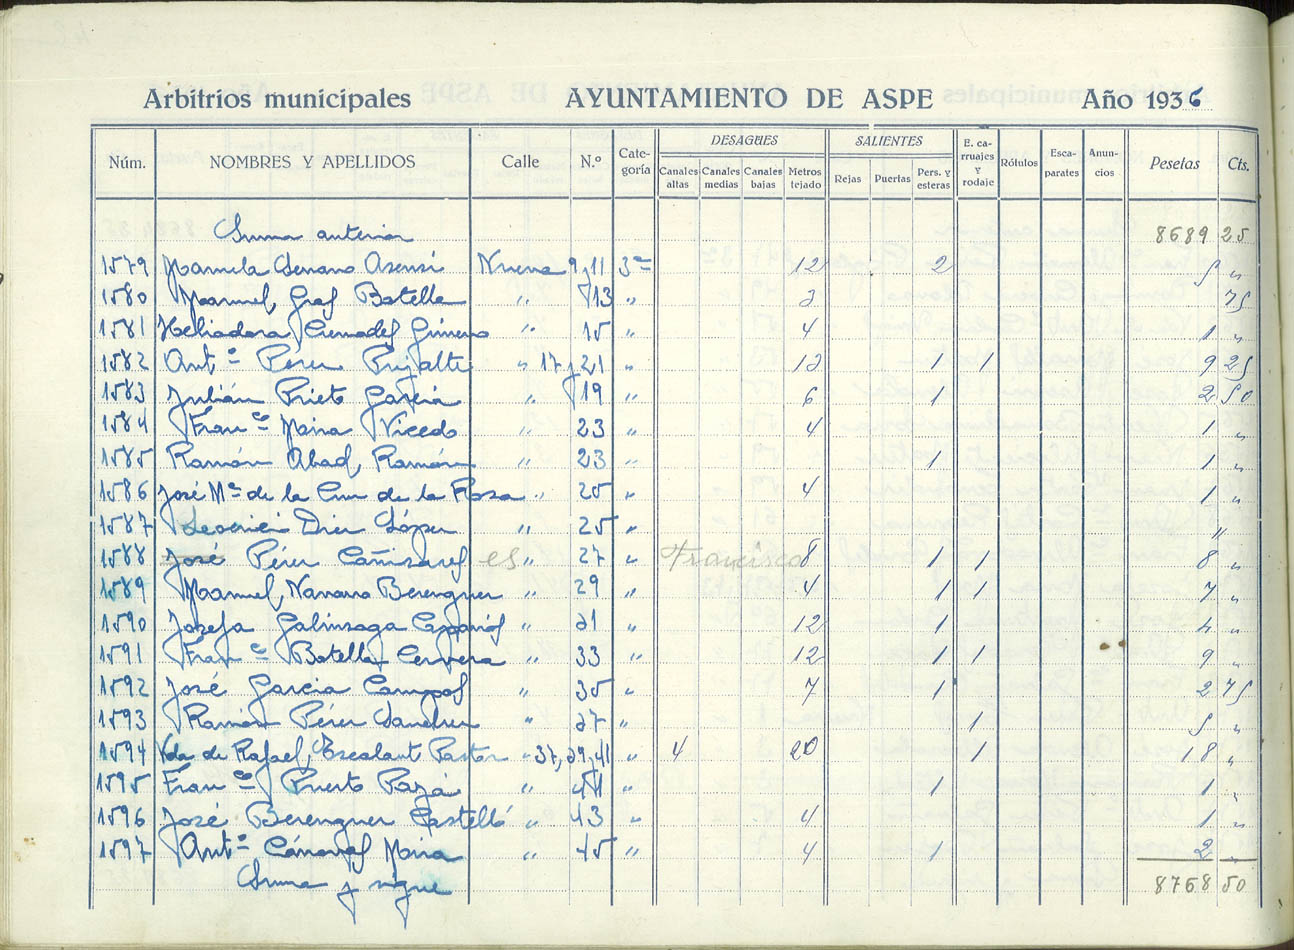 Arbitrios municipales AYUNTAMIENTO DE ASPE Año 1936
Núm. NOMBRES Y APELLIDOS Calle N.º Cate-goría DESAGÜES Canales altas Canales medias Canales bajas Metros tejado SALIENTES Rejas Puertas Pers. y esteras E. ca-rruajes y rodaje Rótulos Esca-parates Anun-cios Pesetas Cts.
Suma anterior 8689 25
1579 Manuela Serrano Asensi Nueva 9 y 11 3ª 12 2 5 "
1580 Manuel Graf Botella " 13 " 3 75
1581 Heliodora Cremades Gimeno " 15 " 4 1 "
1582 Antº Pérez Pujalte " 17 y 21 " 13 1 1 9 25
1583 Julián Prieto García " 19 " 6 1 2 50
1584 Franco Mira Vicedo " 23 " 4 1 "
1585 Ramón Abad Ramón " 23 " 1 1 "
1586 José Mª de la Cruz de la Rosa " 25 " 4 1 "
1587 Diez López " 25 " "
1588 José Pérez Cañizares es " 27 " Francisco 8 1 1 8 "
1589 Manuel Navarro Berenguer " 29 " 4 1 1 7 "
1590 Josefa Galinsoga " 31 " 12 1 4 "
1591 Franco Botella Cervera " 33 " 12 1 1 9 "
1592 José García Campos " 35 " 7 1 2 75
1593 Ramón Pérez " 37 " 1 5 "
1594 Vda de Rafael Escalant Pastor " 37, 39 y 41 " 4 20 1 18 "
1595 Franco Puerto " 41 " 1 1 "
1596 José Berenguer Castelló " 43 " 4 1 "
1597 Antº Cánovas Mira " 45 " 4 1 2 "
Suma y sigue 8768 50